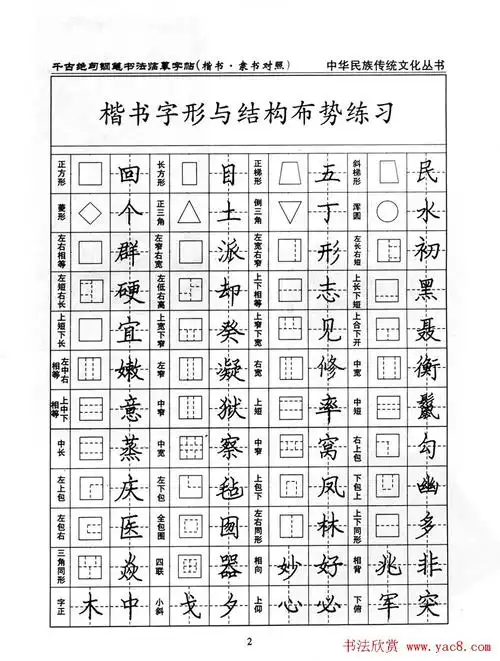 千古绝句钢笔书法临摹字帖(楷书·隶书对照) 中华民族传统文化丛书
楷书字形与结构布势练习
正方形 回 长方形 目 正梯形 五 斜梯形 民
菱形 个 正三角 土 倒三角 丁 浑圆 水
左右相等 群 左窄右宽 派 左宽右窄 形 左长右短 初
左短右长 硬 左低右高 却 上下相等 志 上长下短 黑
上短下长 宜 上宽下窄 癸 上窄下宽 见 上合下开 聂
左中右相等 嫩 左窄 凝 右宽 修 中宽 衡
上中下相等 意 中窄 狱 上短 率 中短 鬣
中长 蒸 中宽 察 中窄 窝 右上包 勾
左上包 庆 左下包 毡 上包下 凤 下包上 幽
左包右 医 全包围 囫 左右同形 林 上下同形 多
三角同形 焱 四联 器 相向 妙 好 相背 兆 非
字正 木 中 小斜 戈 夕 上仰 心 必 下俯 军 突
2
书法欣赏 www.yac8.com